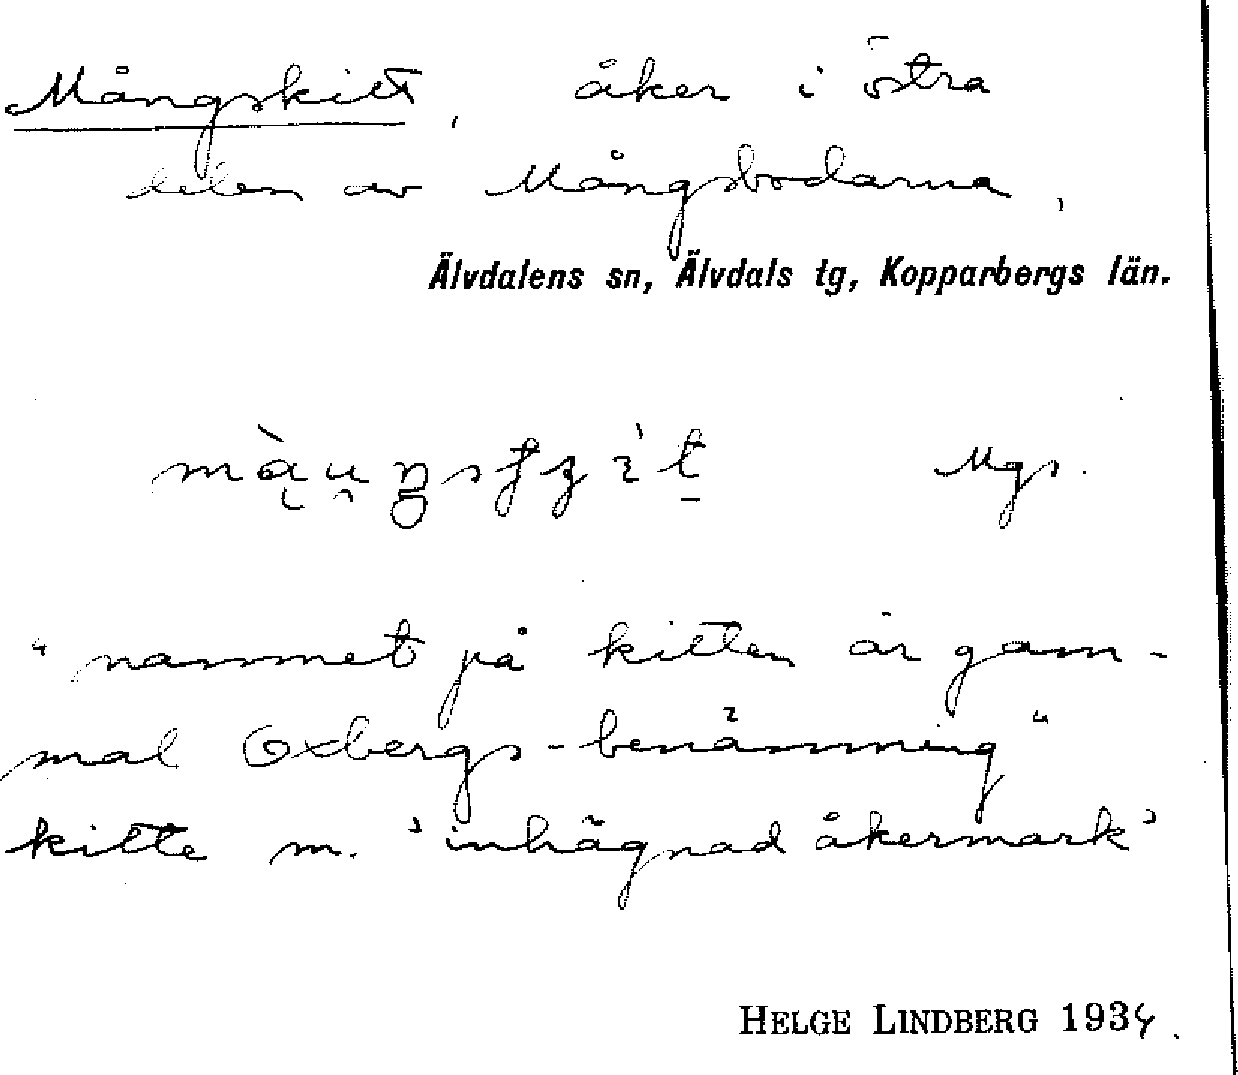 Mångskitt, åker i östra
delen av Mångsbodarna,
Älvdalens sn, Älvdals tg, Kopparbergs län.
Mgs.
"namnet på kitten är gam-
mal Oxbergs-benämning"
kitte m. 'inhägnad åkermark'
HELGE LINDBERG 1934.